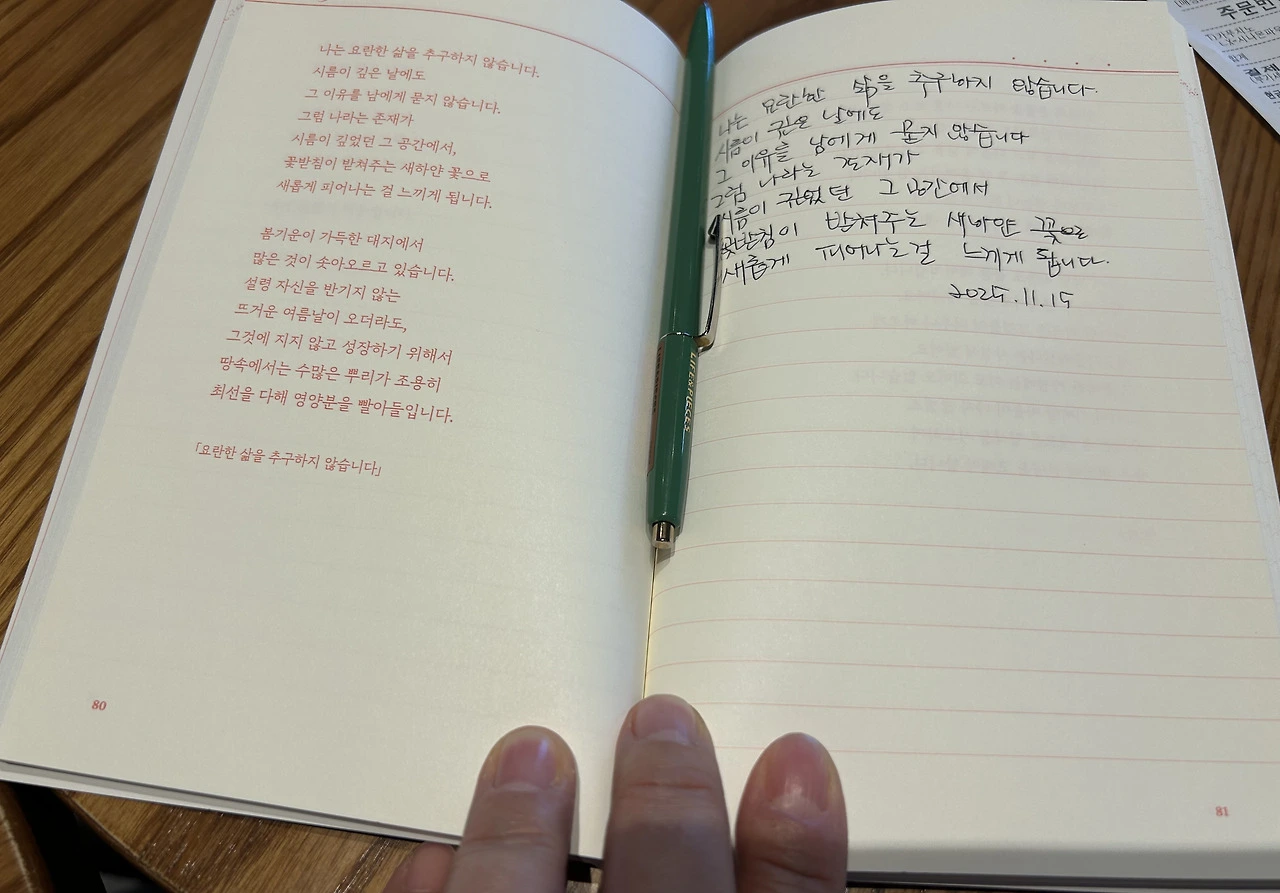 나는 요란한 삶을 추구하지 않습니다.
시름이 깊은 날에도
그 이유를 남에게 묻지 않습니다.
그럼 나라는 존재가
시름이 깊었던 그 공간에서,
꽃받침이 받쳐주는 새하얀 꽃으로
새롭게 피어나는 걸 느끼게 됩니다.
봄기운이 가득한 대지에서
많은 것이 솟아오르고 있습니다.
설령 자신을 반기지 않는
뜨거운 여름날이 오더라도,
그것에 지지 않고 성장하기 위해서
땅속에서는 수많은 뿌리가 조용히
최선을 다해 영양분을 빨아들입니다.
「요란한 삶을 추구하지 않습니다」
80
LIFE&PIECES
나는 요란한 삶을 추구하지 않습니다.
시름이 깊은 날에도
그 이유를 남에게 묻지 않습니다
그럼 나라는 존재가
시름이 깊었던 그 공간에서
꽃받침이 받쳐주는 새하얀 꽃으로
새롭게 피어나는걸 느끼게 됩니다.
2025.11.15
81
주문번
결제